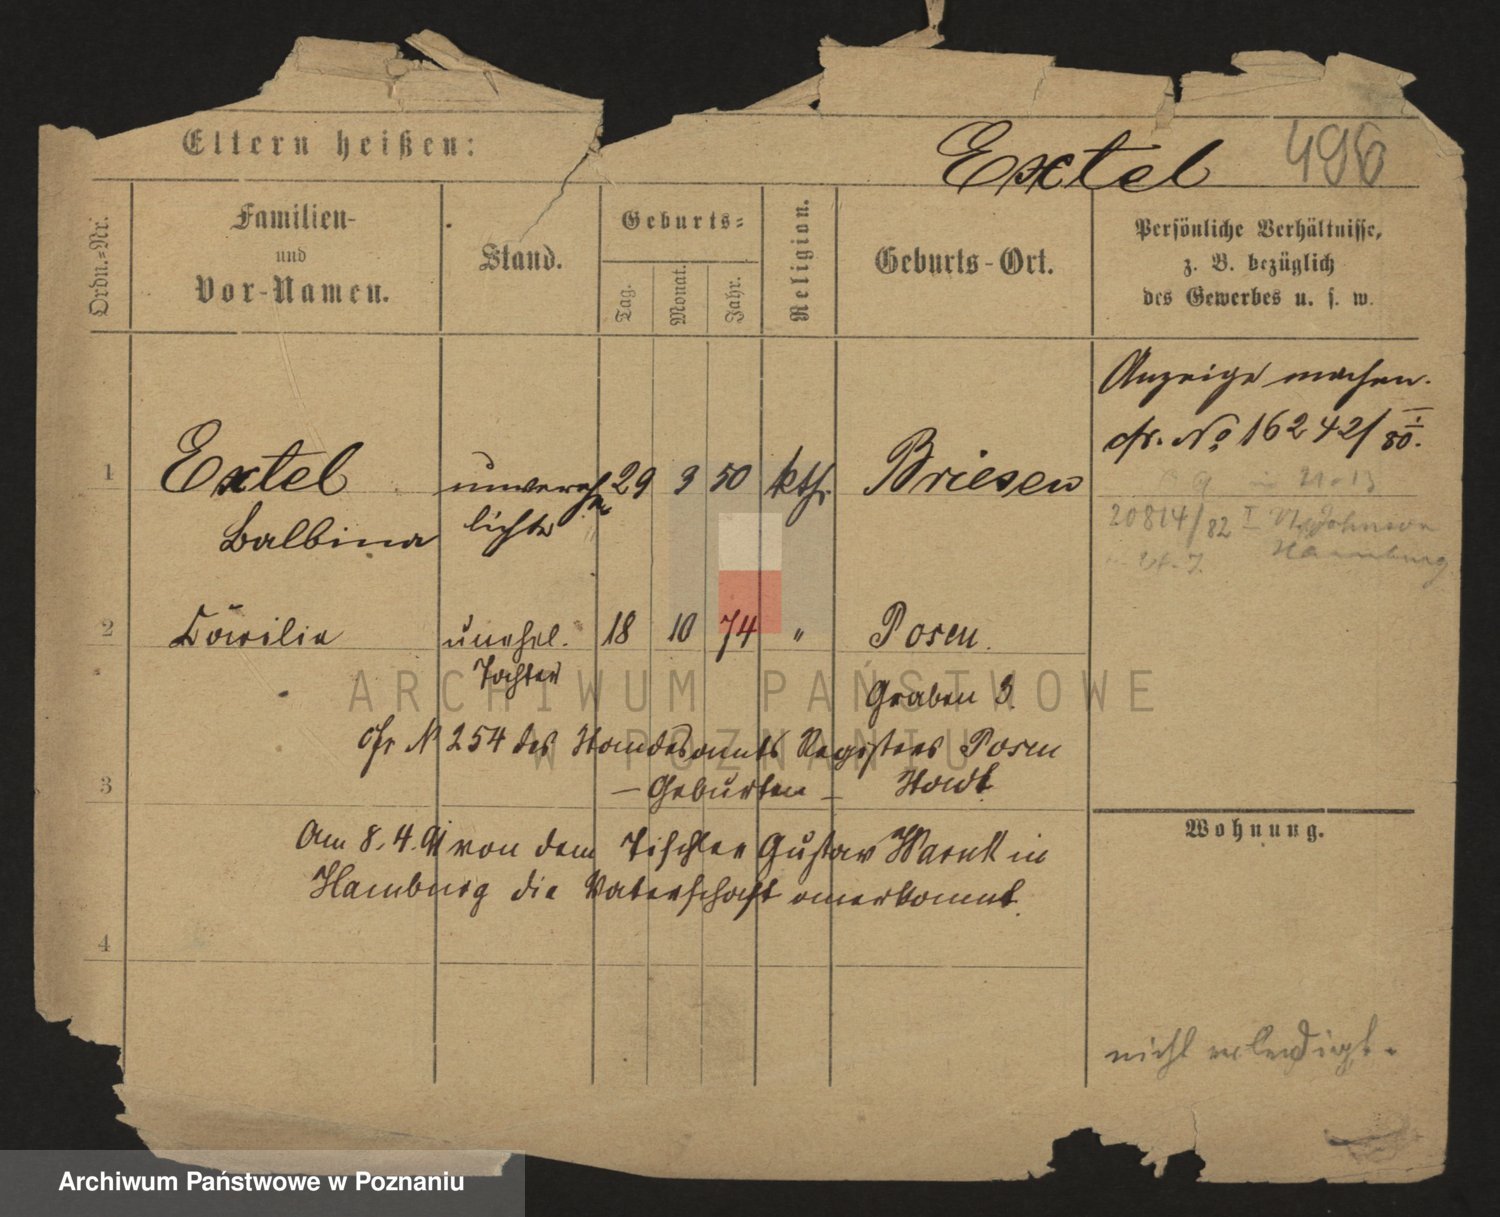 Eltern heißen:
Extel
496
Ordn.-Nr.
Familien-
und
Vor-Namen.
Stand.
Geburts-
Tag.
Monat.
Jahr.
Religion.
Geburts-Ort.
Persönliche Verhältnisse,
z. B. bezüglich
des Gewerbes u. s. w.
Anzeige machen.
cfr. No 16242/80. I
1 Extel unvereh 29 3 50 kth. Briesen
Balbina lichte
20814/82 I Johnson
Hamburg
2 Cäcilie unehel. 18 10 74 " Posen.
Tochter
Graben 3.
cfr N 254 des Standesamts Registers Posen
3 — Geburten — Stadt
Wohnung.
Am 8. 4. 91 von dem Tischler Gustav in
Hamburg die Vaterschaft anerkannt.
4
nicht erledigt.
ARCHIWUM PAŃSTWOWE
W POZNANIU
Archiwum Państwowe w Poznaniu